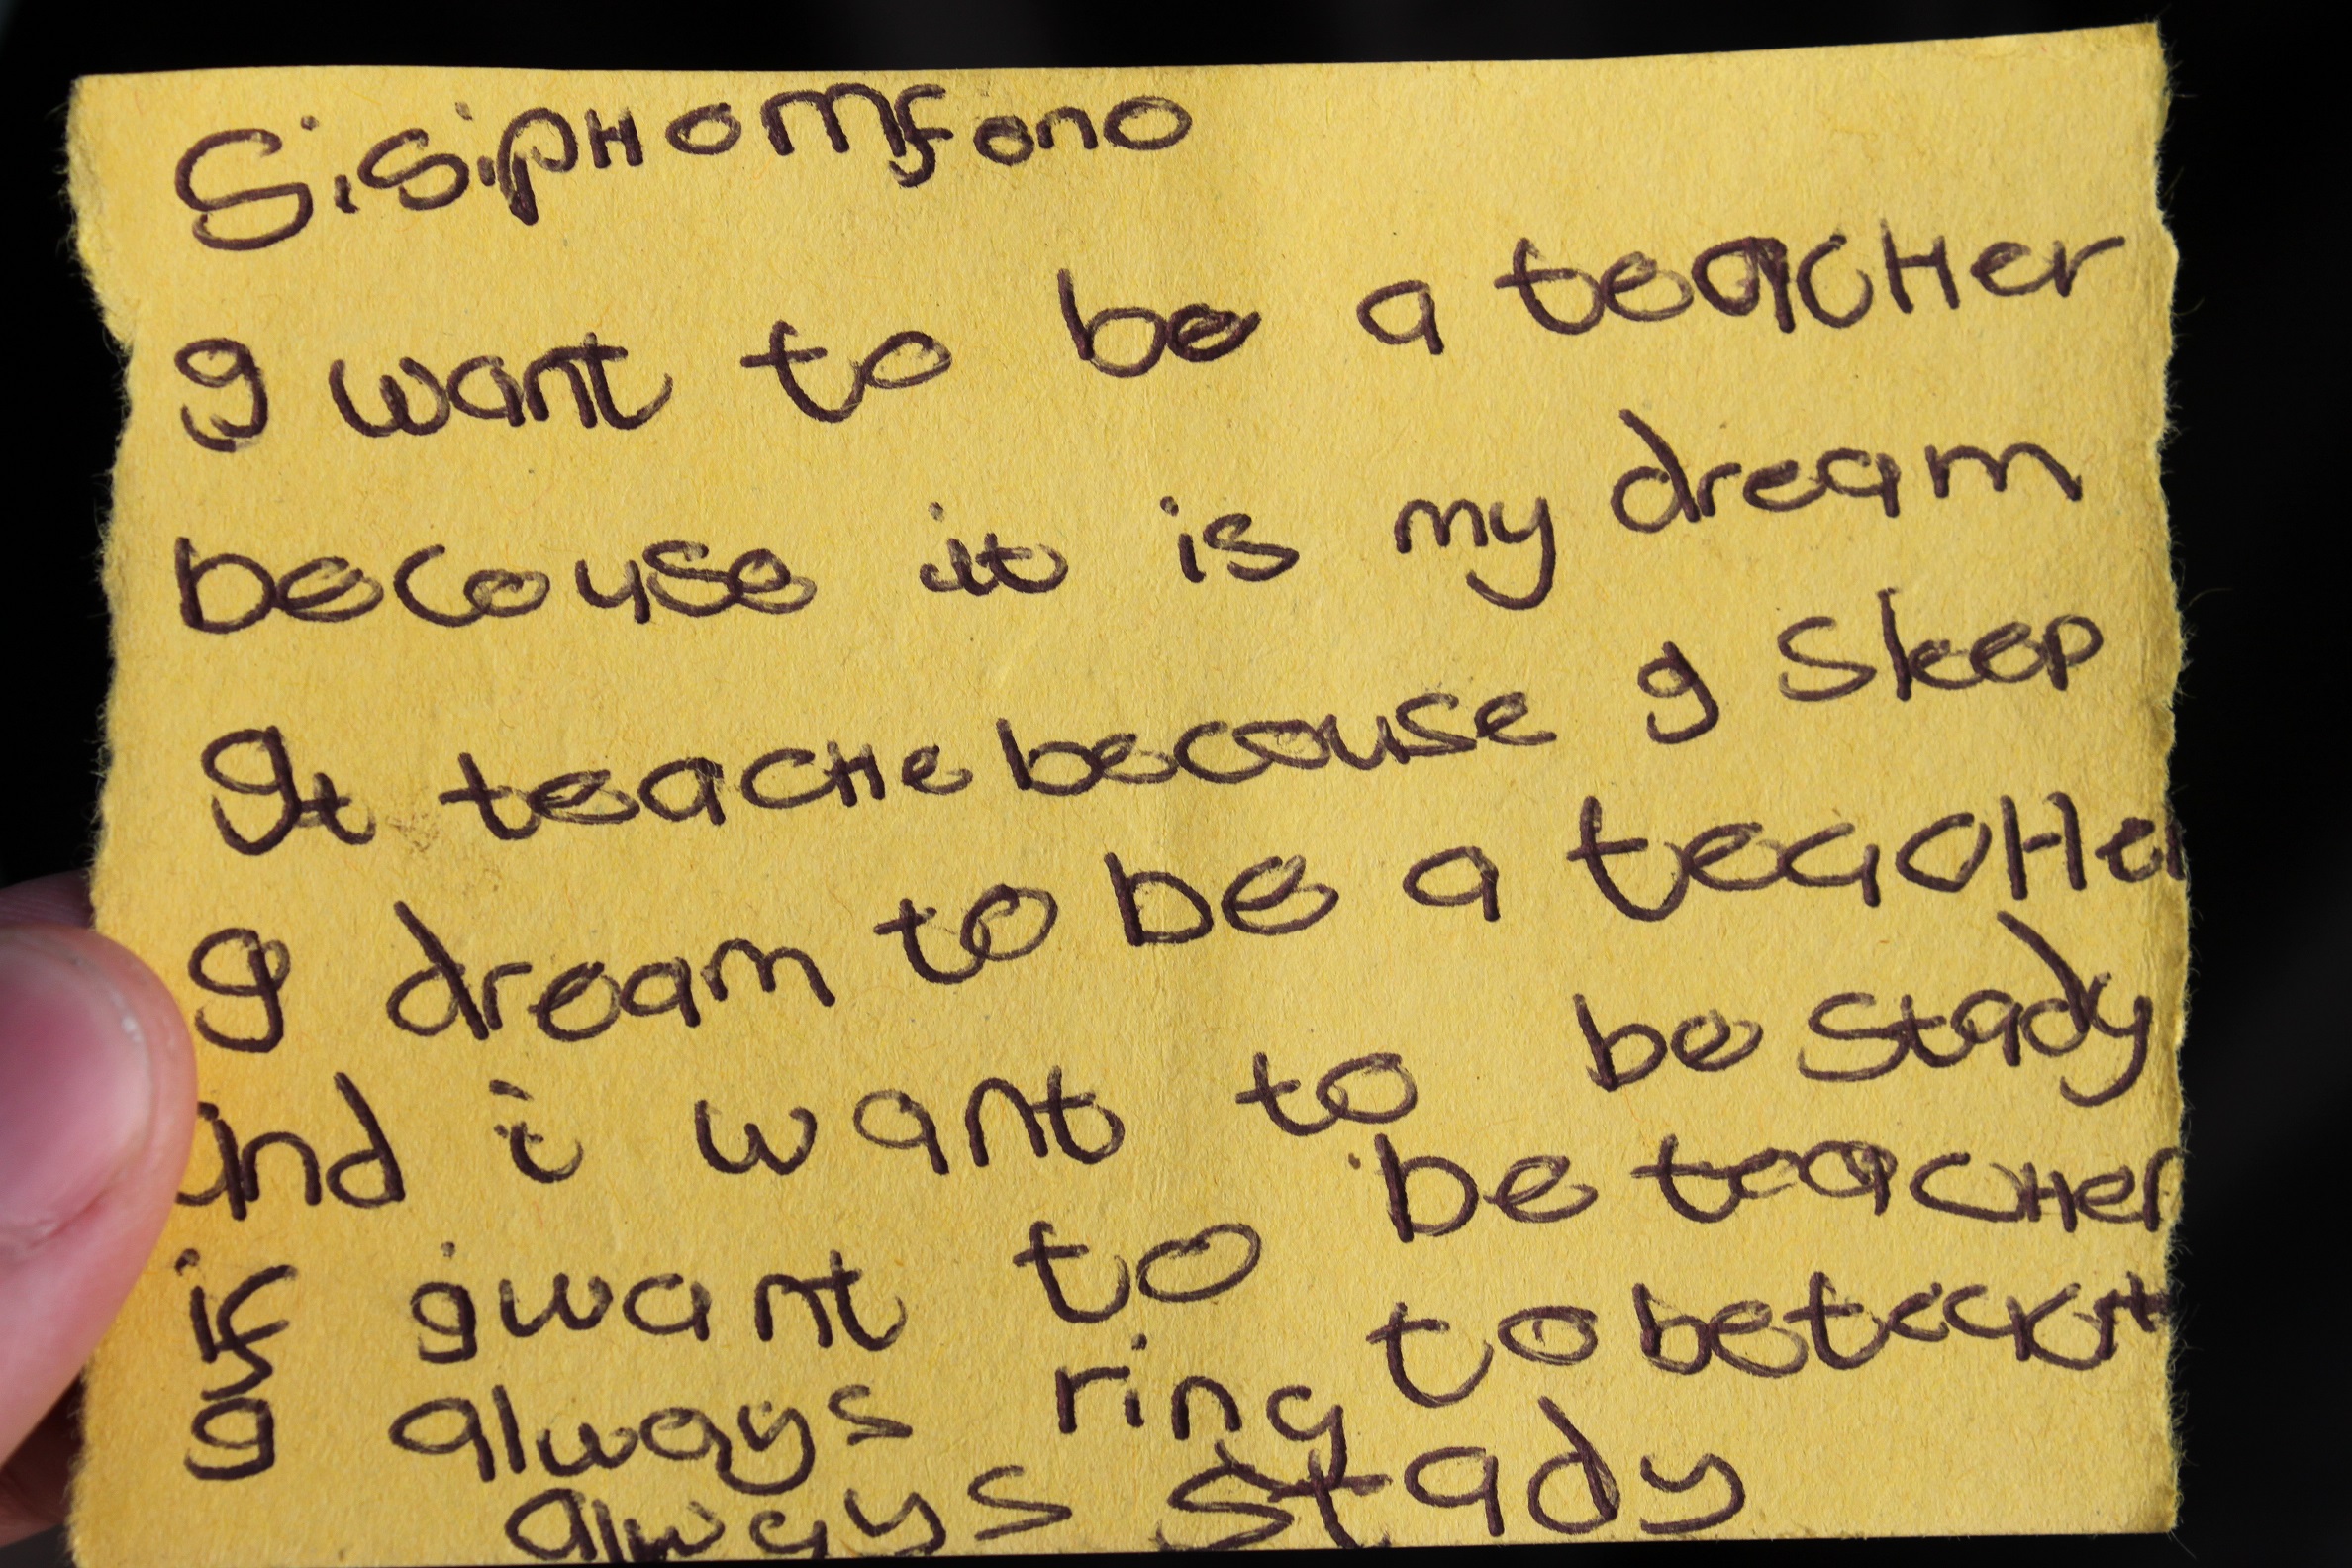 SisipHo mfono
I want to be a teacHer
becouse it is my dream
It teacHe becouse I sleep
I dream to be a teacHer
and i want to be stady
if I want to be teacHer
I always ring to be
always stady